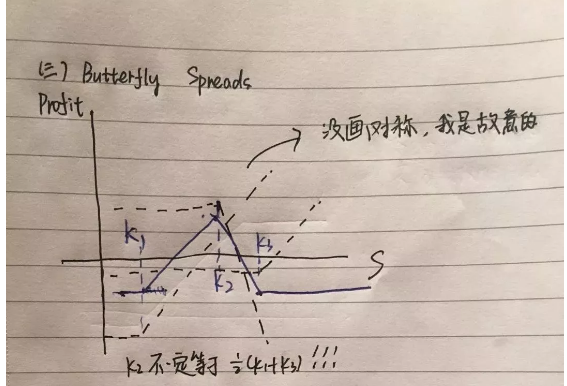 (三) Butterfly Spreads
Profit
没画对称，我是故意的
K1
K2
K3
S
K2不一定等于 ½(K1+K3) !!!